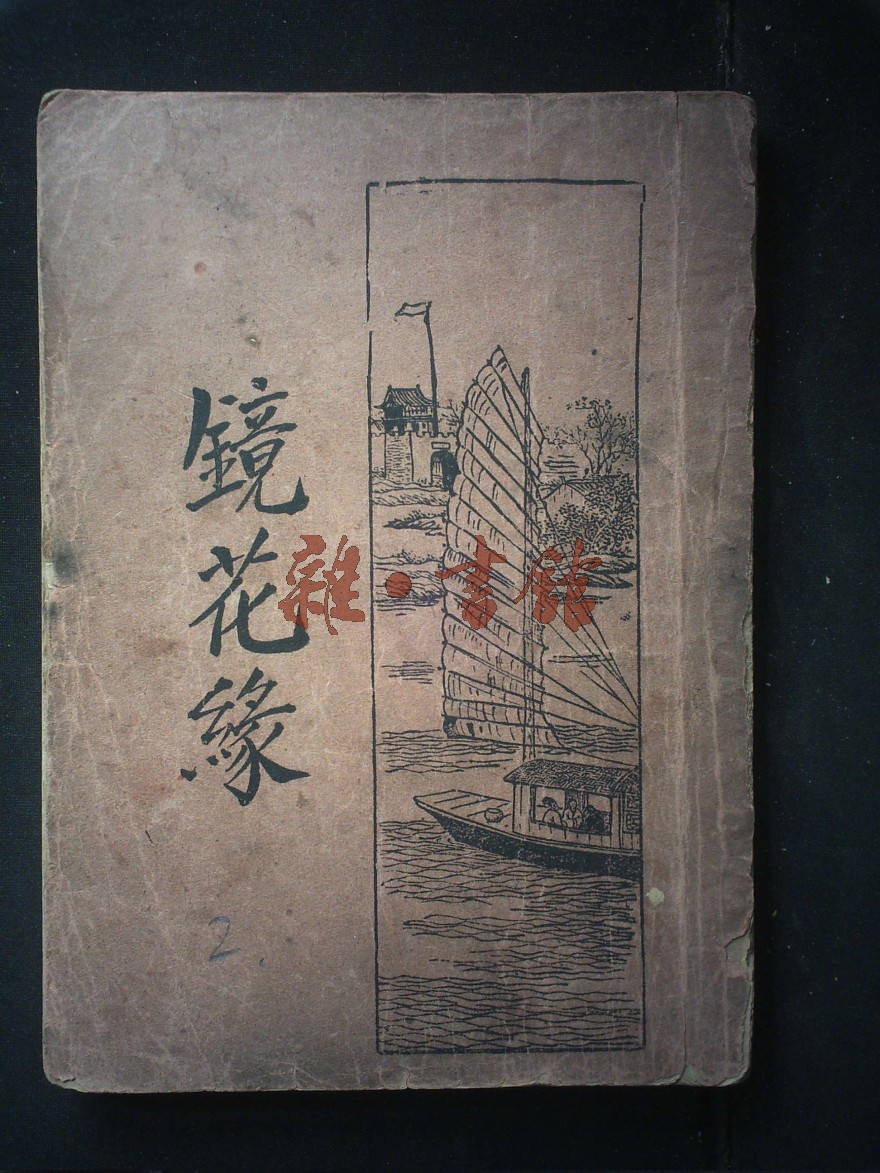 鏡花緣
雜·書館
2.